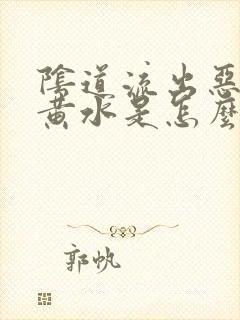 陰道流出惡
黃水是怎麼
郭帆